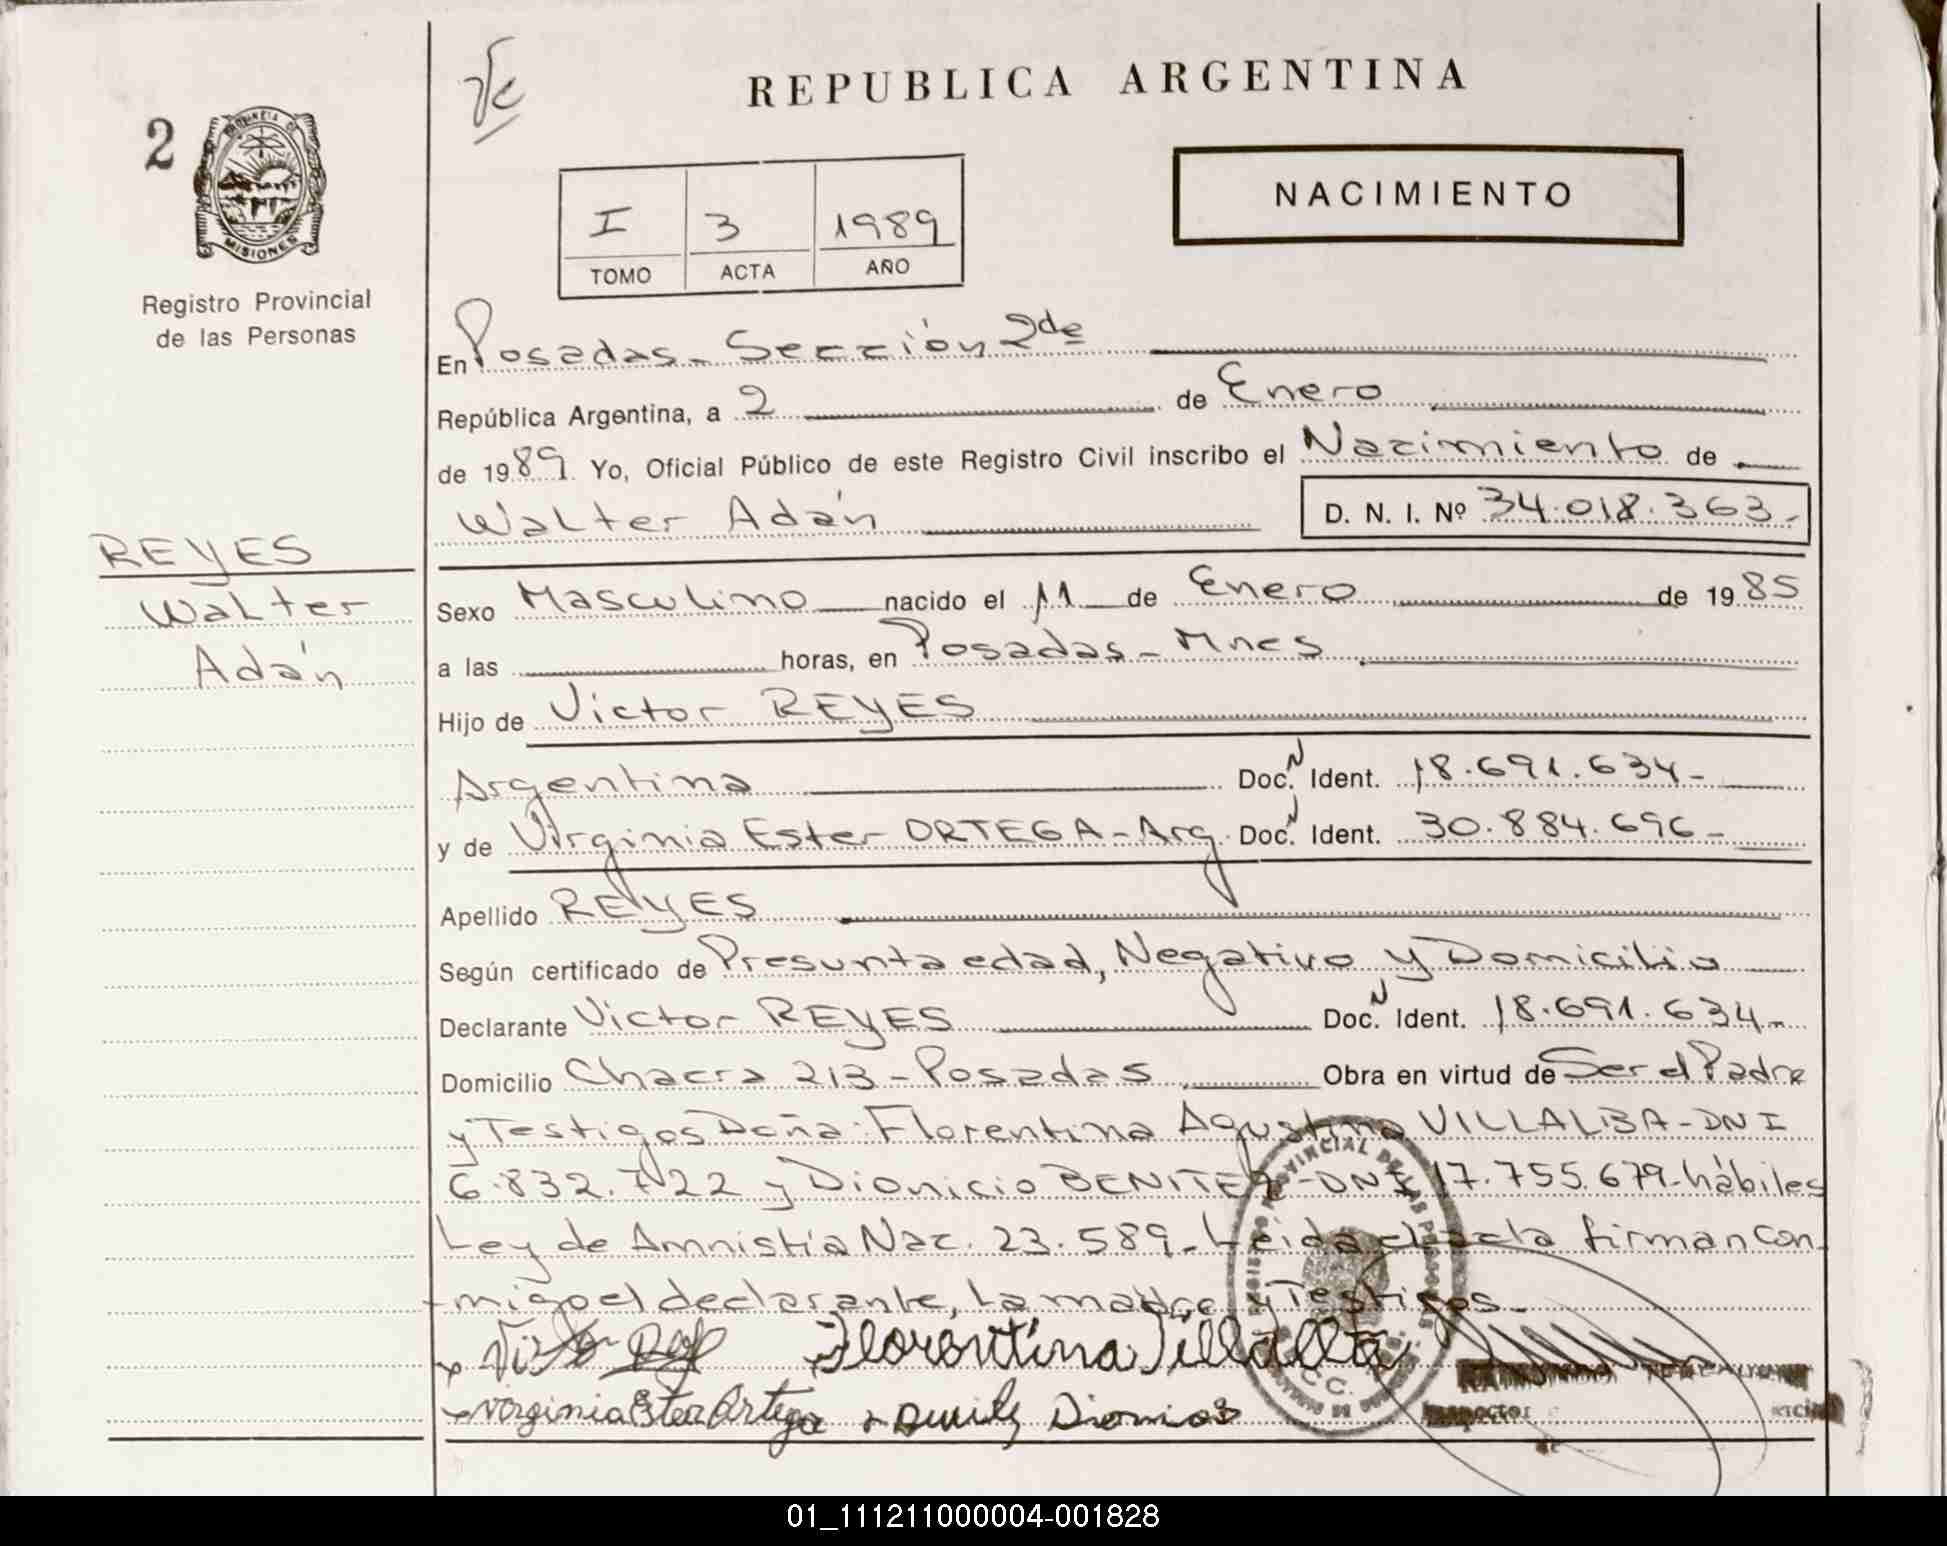 REPUBLICA ARGENTINA
2
PROVINCIA DE
MISIONES
Registro Provincial
de las Personas
NACIMIENTO
I 3 1989
TOMO ACTA AÑO
En Posadas - Sección 2da
República Argentina, a 2 de Enero
de 1989. Yo, Oficial Público de este Registro Civil inscribo el Nacimiento de
Walter Adán D. N. I. Nº 34.018.363-
REYES
Walter
Adán
Sexo Masculino nacido el 11 de Enero de 1985
a las horas, en Posadas - Mnes
Hijo de Victor REYES
Argentina Doc. N Ident. 18.691.634-
y de Virginia Ester ORTEGA - Arg. Doc. N Ident. 30.884.696-
Apellido REYES
Según certificado de Presunta edad, Negativo y Domicilio
Declarante Victor REYES Doc. N Ident. 18.691.634-
Domicilio Chacra 213 - Posadas Obra en virtud de Ser el Padre
y Testigos Doña: Florentina Agustina VILLALBA - DNI
6.832.722 y Dionicio BENITEZ - DNI 17.755.679 - hábiles
Ley de Amnistía Nac. 23.589 - Leida el acta firman con
-migo el declarante, la madre y Testigos -
Florentina Villalba
Virginia Ester Ortega
Inspector
01_111211000004-001828